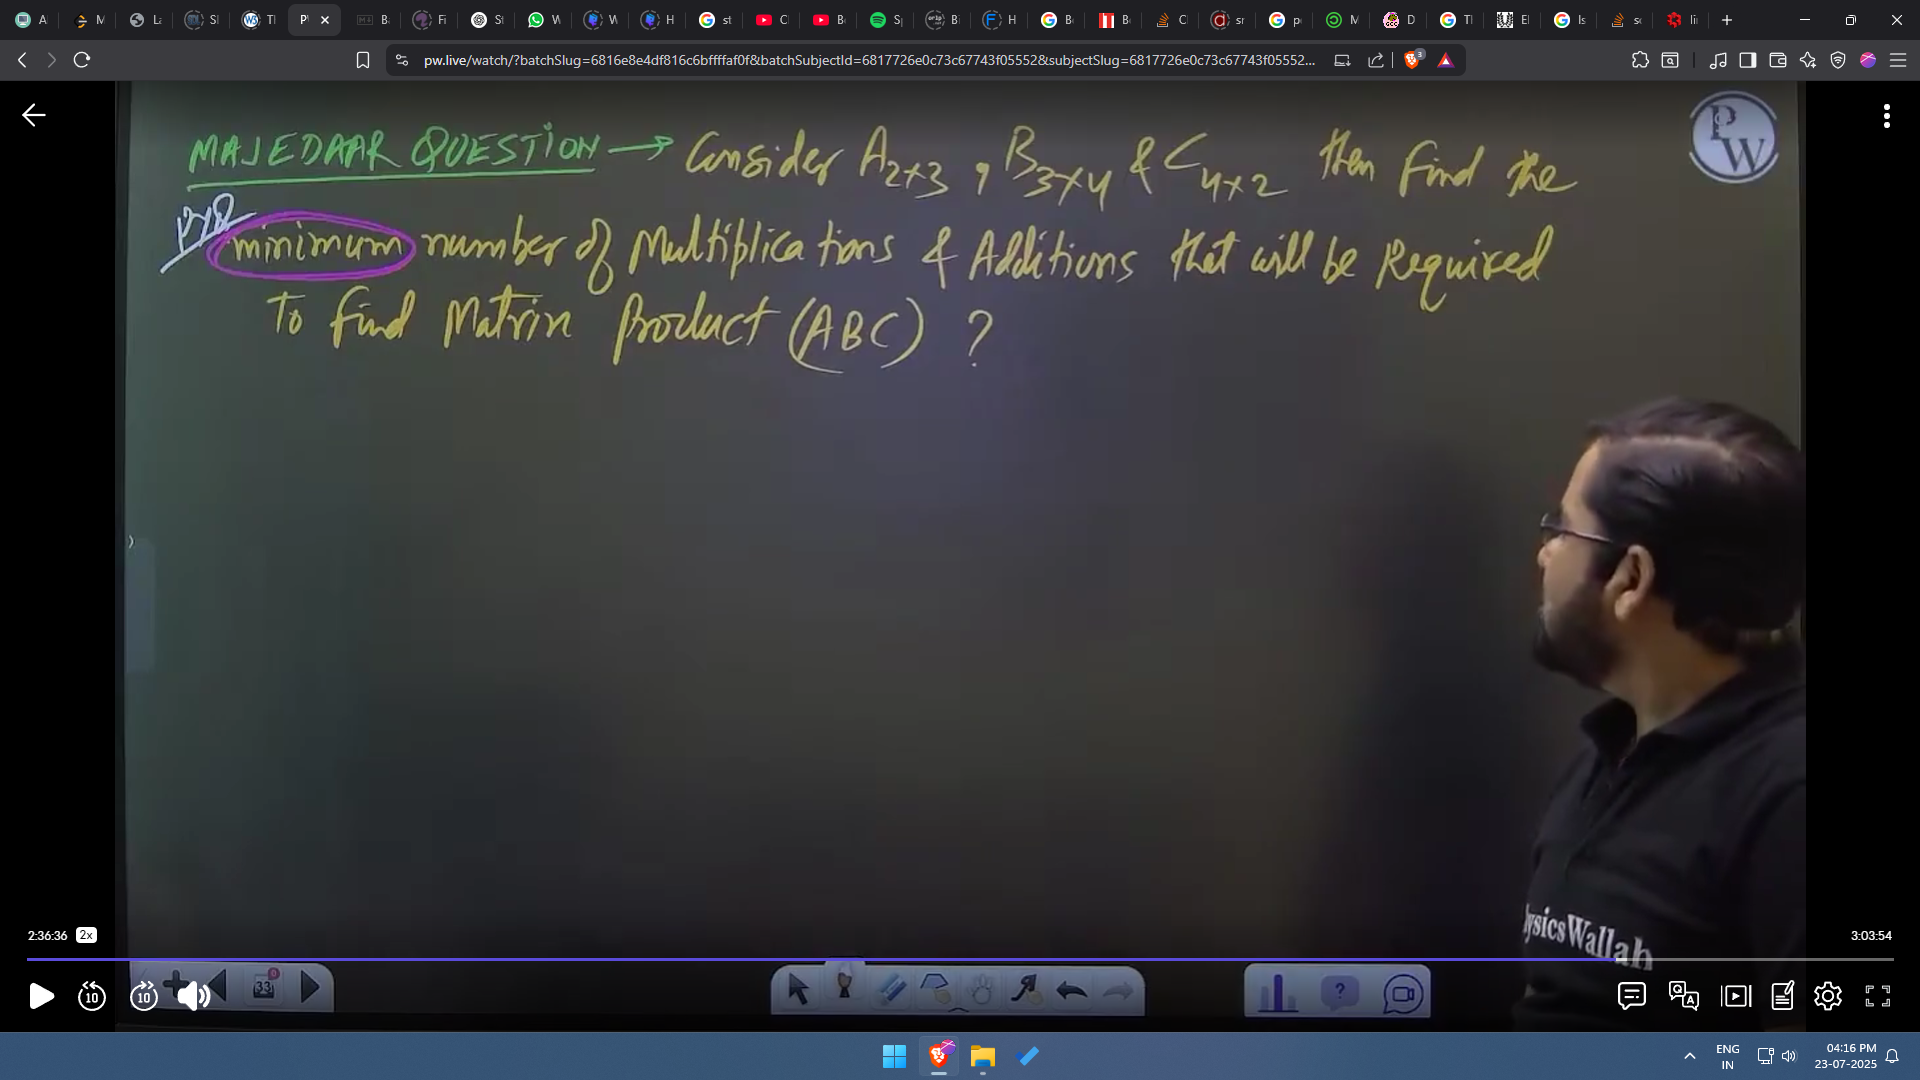 A
M
La
Sl
Tl
P
B
Fi
St
W
W
H
st
Cl
B
Sp
Bi
H
B
B
C
sr
p
M
D
Tl
El
Is
sc
lin
pw.live/watch/?batchSlug=6816e8e4df816c6bffffaf0f&batchSubjectId=6817726e0c73c67743f05552&subjectSlug=6817726e0c73c67743f05552...
3
MAJEDAAR QUESTION → Consider A2×3 , B3×4 & C4×2 then find the
PYQ
minimum number of Multiplications & Additions that will be Required
To find Matrix Product (ABC) ?
PW
ysicsWallah
2:36:36 2x
3:03:54
10
10
33
0
?
Q
A
ENG
IN
04:16 PM
23-07-2025